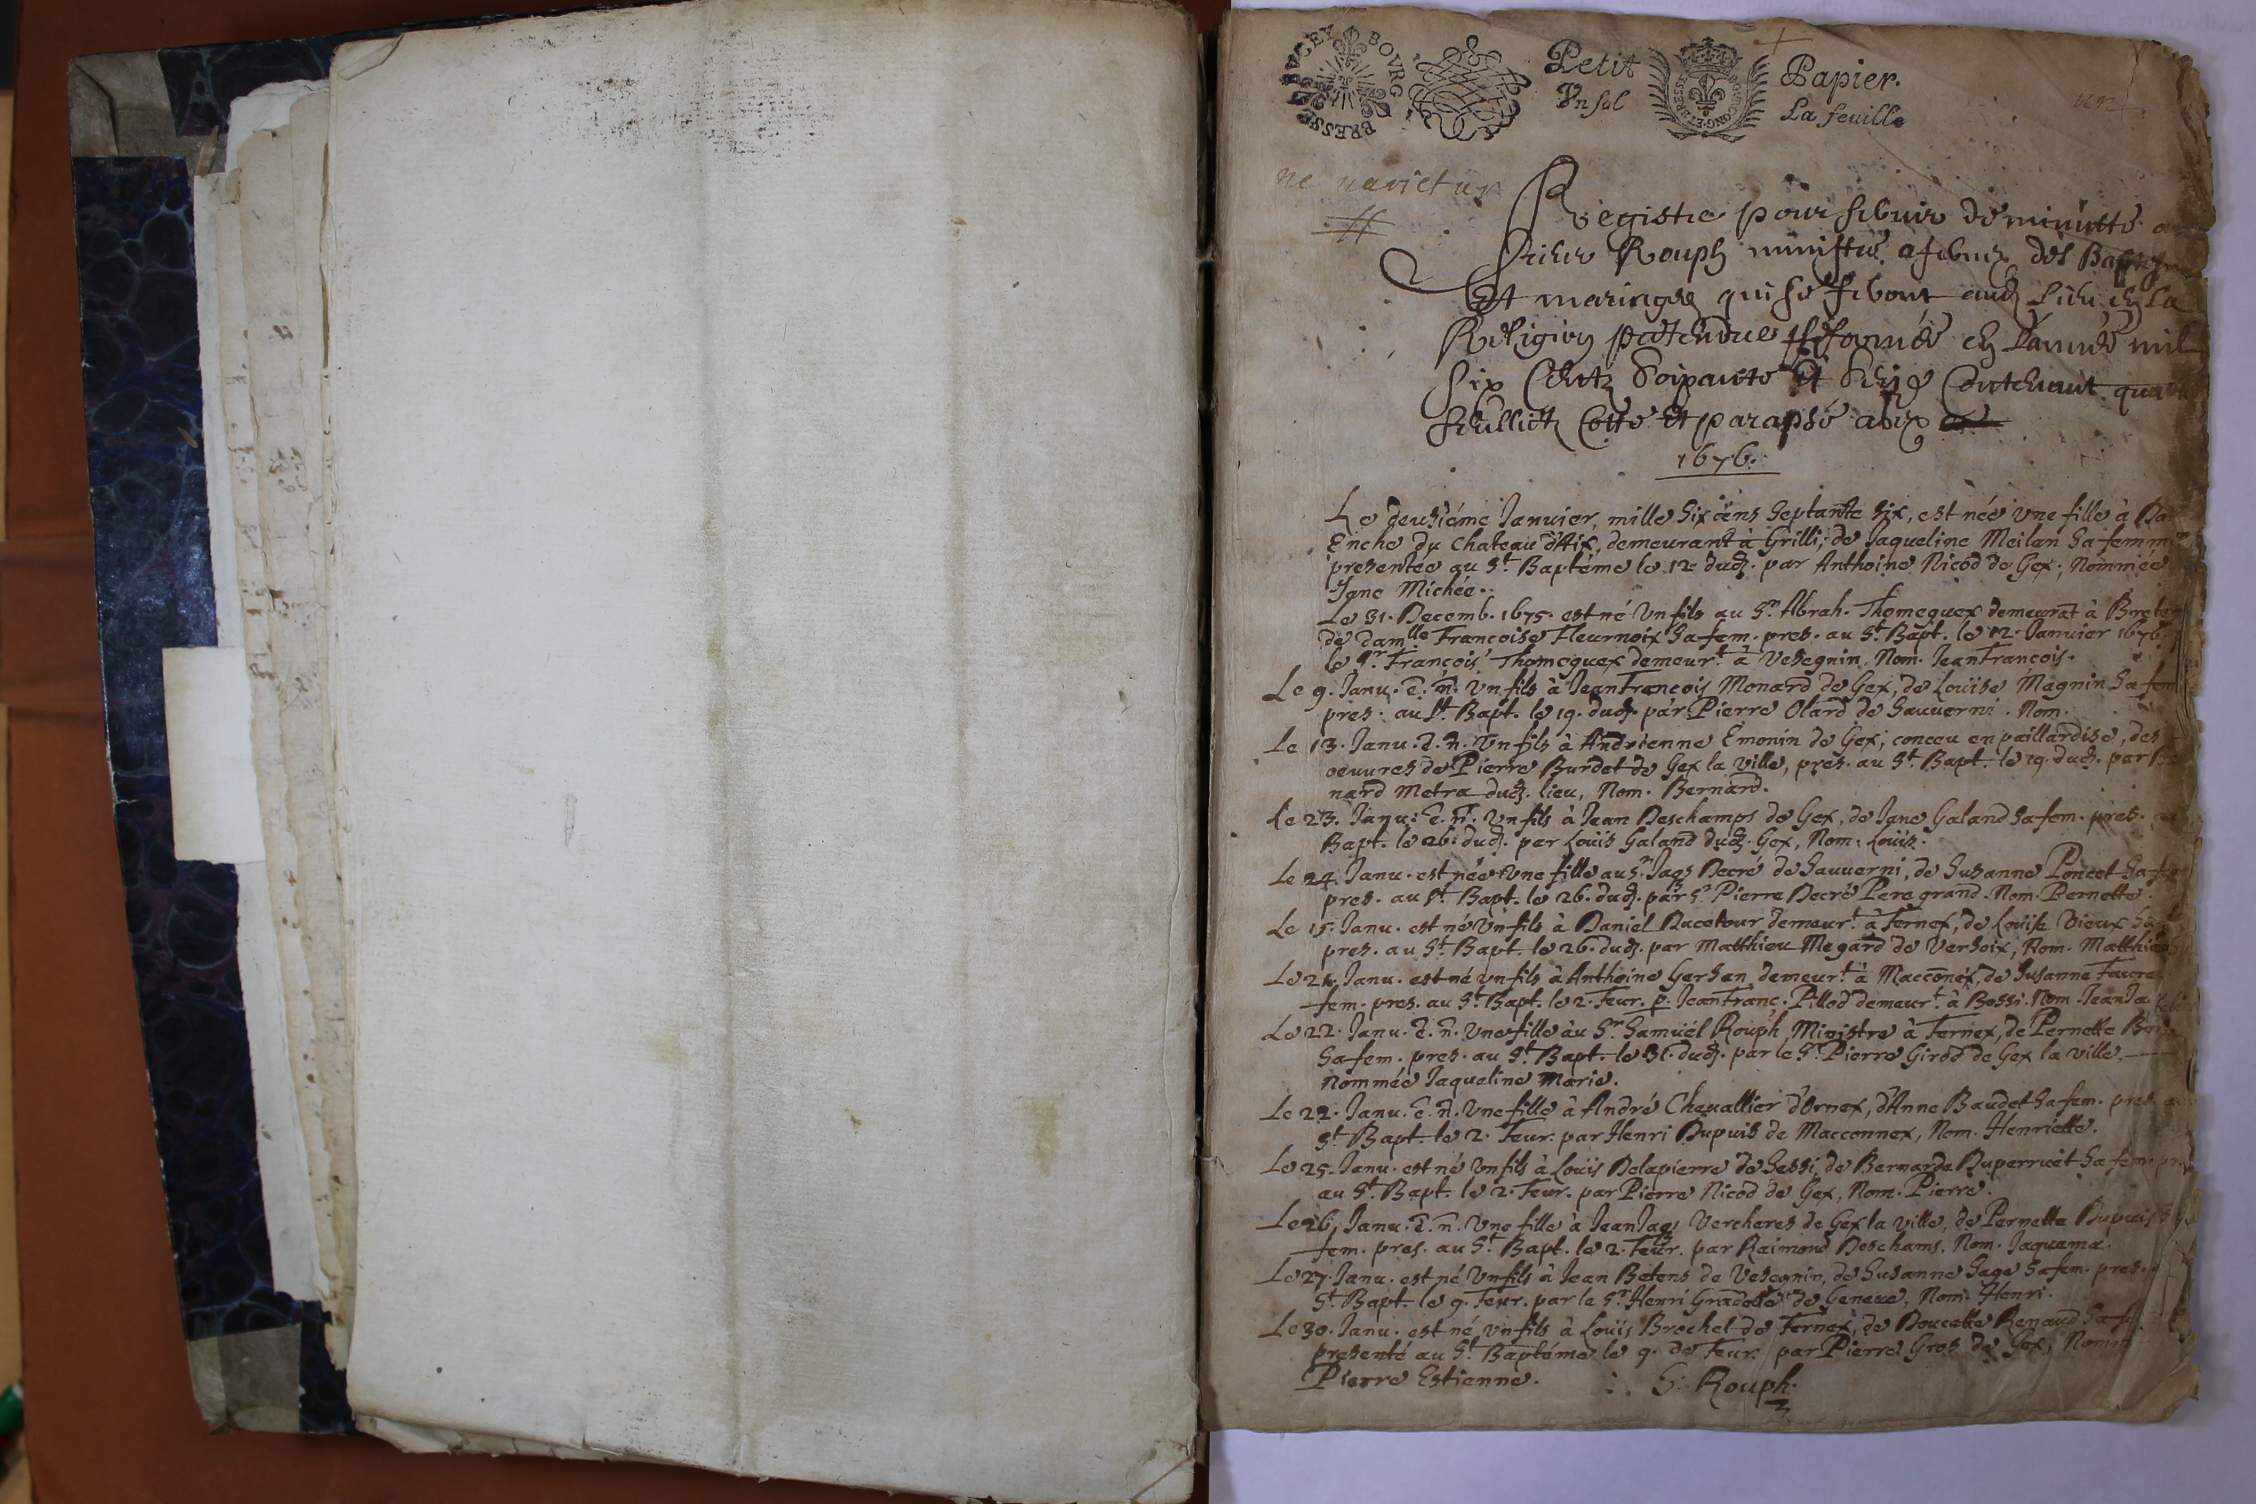 BOVRG BRESSE BVGEY
Petit Papier.
Vn sol La feuille
ne varietur
Registre pour servir de minutte au
sieur Rouph ministre a fernex des Baptesmes
Et mariages qui se feront aud lieu en La
Religion pretendue refformée en Lannée mil
Six Centz Soixante Et Seize Contenant
feullietz Cotté Et paraphé
1676.
Le deusiéme Ianuier, mille Six cens Septante six, est née vne fille à Da
Enche du Chateau d'Aix, demeurant à Grilli; de Iaqueline Meilan Sa femme
presentée au St. Baptéme le 12 dud. par Anthoine Nicod de Gex; Nommée
Iane Michée.
Le 31. Decemb. 1675. est né Vn fils au Sr. Abrah. Thomeguex demeurāt à Brete
de damlle. Francoise Fleurnoix Sa fem. pres. au St. Bapt. le 12. Ianuier 1676.
le Sr. François Thomeguex demeurt. à Vesegnin. Nom. Iean François.
Le 9. Ianu. ē. n̄. Vn fils à Iean François Monard de Gex, de Loüise Magnin Sa fem
pres. au St. Bapt. le 19. dud. par Pierre Olard de Sauuerni. Nom.
Le 13. Ianu. ē. n̄. Vn fils à Andrienne Emonin de Gex; conceu en paillardise, des
oeuures de Pierre Burdet de Gex la ville, pres. au St. Bapt. le 19. dud. par Be
nard Metra dud. lieu, Nom. Bernard.
Le 23. Ianu. ē. n̄. Vn fils à Iean Deschamps de Gex, de Iane Galand Sa fem. pres. au
Bapt. le 26. dud. par Loüis Galand dud. Gex, Nom. Loüis.
Le 24. Ianu. est née Vne fille au Sr. Iaqs Decré de Sauuerni, de Susanne Poncet Sa fem
pres. au St. Bapt. le 26. dud. par Sr. Pierre Decré Pere grand. Nom. Pernette.
Le 15. Ianu. est né Vn fils à Daniel Ducetour demeurt. à Fernex, de Loüise Vieux Sa f
pres. au St. Bapt. le 26. dud. par Matthieu Megard de Versoix, Nom. Matthieu
Le 21. Ianu. est né vn fils à Anthoine Gersan demeurt. à Macconéx, de Susanne Faure
fem. pres. au St. Bapt. le 2. Feur. p. Iean Franç. Pillod demeurt. à Bossi. Nom. Iean Ia
Le 22. Ianu. ē. n̄. Vne fille au Sr. Samuël Rouph, Ministre à Fernex, de Pernette
Sa fem. pres. au St. Bapt. le 31. dud. par le Sr. Pierre Girod de Gex la ville.
nommée Iaqueline Marie.
Le 22. Ianu. ē. n̄. Vne fille à André Cheuallier d'Ornex, d'Anne Baudet Sa fem. pres. au
St. Bapt. le 2. Feur. par Henri Dupuis de Macconnex, Nom. Henriette.
Le 25. Ianu. est né Vn fils à Loüis Delapierre de Sessi, de Bernarde Duperruët Sa fem. pr
au St. Bapt. le 2. Feur. par Pierre Nicod de Gex, Nom. Pierre.
Le 26. Ianu. ē. n̄. Vne fille à Iean Iaqs Vercheres de Gex la ville, de Pernette Dupuis Sa
fem. pres. au St. Bapt. le 2. Feur. par Raimond Deschams. Nom. Iaquema.
Le 27. Ianu. est né Vn fils à Iean Betens de Vesegnin, de Susanne Sage Sa fem. pres.
St. Bapt. le 9. Feur. par le Sr. Henri Gradelle de Geneue, Nom. Henri.
Le 30. Ianu. est né vn fils à Loüis Brochet de Fernex, de Doucette Renaud Sa f
presenté au St. Baptéme le 9. de Feur. par Pierre Gros de Gex, Nommé
Pierre Estienne. S. Rouph.